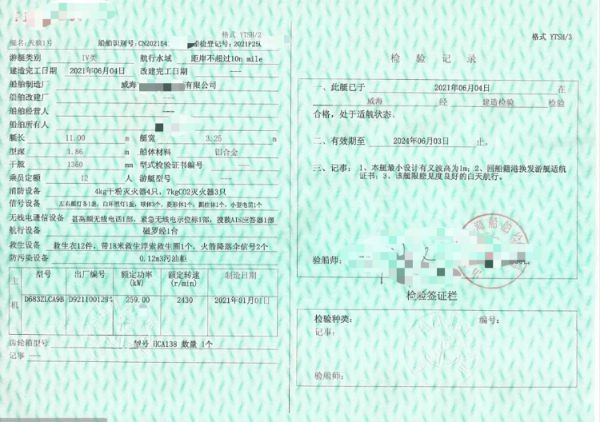 格式 YTSH/2
艇名:天骄1号 船舶识别号:CN202154 检验登记号:2021P25
游艇类别 IV类 航行水域 距岸不超过10n mile
建造完工日期 2021年06月04日 改建完工日期 ——
船舶制造厂 威海 有限公司
船舶改建厂
船舶经营人
船舶所有人
艇长 11.00 m 艇宽 3.25 m
型深 1.86 m 船体材料 铝合金
干舷 1360 mm 型式检验证书编号 ——
乘员定额 12 人 游艇型号 ——
消防设备 4kg干粉灭火器4只,7kgCO2灭火器3只
信号设备
无线电通信设备 甚高频无线电话1部,紧急无线电示位标1部,搜救AIS应答器1部
航行设备 磁罗经1台
救生设备 救生衣12件,带18米救生浮索救生圈1个,火箭降落伞信号2个
防污染设备 0.12m3污油柜
主机 型号 出厂编号 额定功率(kW) 额定转速(r/min) 制造日期
D683ZLCA9B D9211001284 259.00 2430 2021年01月01日
齿轮箱型号 型号 HCA138 数量 1个
记事 ——
格式 YTSH/3
检验记录
一、此艇已于 2021年06月04日 在
威海 经 建造检验 检验
合格,处于适航状态。
二、有效期至 2024年06月03日 止。
三、记事: 1、本艇最小设计有义波高为1m;2、回船籍港换发游艇适航
证书;3、该艇限能见度良好的白天航行。
验船师:
检验签证栏
检验种类: 编号:
记事:
验船师: